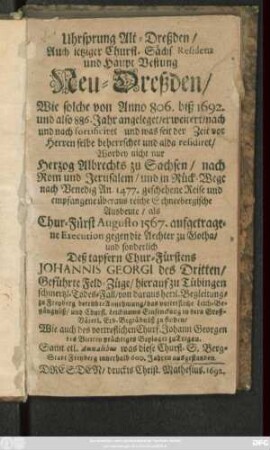 Uhrsprung Alt-Dreßden/
Auch ietziger Churfl. Sächs Residenz
und Haupt Vestung
Neu-Dreßden/
Wie solche von Anno 806. biß 1692.
und also 886. Jahr angeleget/erweitert/nach
und nach fortificirt und was seit der Zeit vor
Herren selbe beherrschet und alda residiret/
Worbey nicht nur
Herzog Albrechts zu Sachsen/ nach
Rom und Jerusalem/ und in Rück-Wege
nach Venedig An. 1477. geschehene Reise und
empfangene überaus reiche Schneebergische
Ausbeute/ als
Chur-Fürst Augusto 1567. aufgetrage-
ne Execution gegen die Aechter zu Gotha/
und sonderlich
Deß tapfern Chur-Fürstens
JOHANNIS GEORGI des Dritten/
Geführte Feld-Züge/ hierauf zu Tübingen
schmertzl. Todes-Fall/ von daraus herrl. Begleitung
zu Freyberg
Wie auch des vortreflichen Churf. Johann Georgen
des Vierten prächtiges Beylager zu Leipzig.
Samt etl. was die Churfl. S. Berg-
Stadt Freyberg innerhalb 600. Jahren ausgestanden.
DRESDEN/ druckts Christ. Mathesius. 1692.